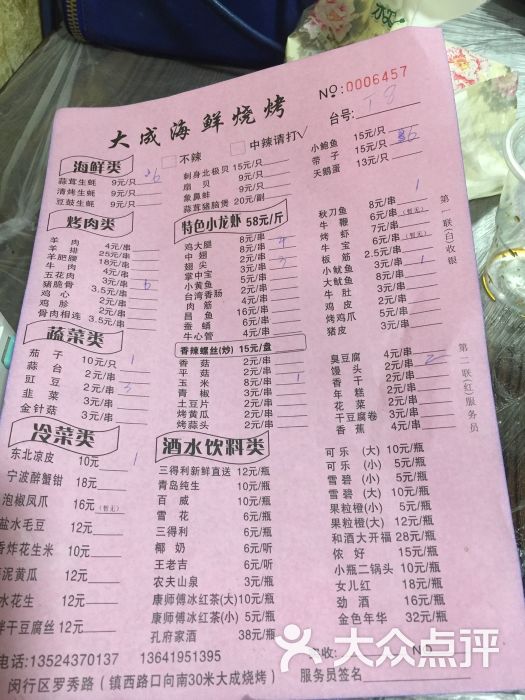 大成海鲜烧烤
NO:0006457
台号: T8
海鲜类
不辣
中辣请打√
蒜茸生蚝 9元/只 26
清烤生蚝 9元/只
豆鼓生蚝 9元/只
刺身北极贝 15元/只
扇贝 9元/只
象鼻蚌 9元/只
蒜茸猪脑煲 20元/副
小鲍鱼 15元/只
带子 15元/只
天鹅蛋 13元/只
烤肉类
羊肉 4元/串
羊排 25元/串
羊肥腰 18元/串
牛肉 4元/串
五花肉 3元/串
猪脆骨 3.5元/串 6
鸡心 2元/串
鸡胗 2元/串
骨肉相连 3.5元/串
特色小龙虾 58元/斤
鸡大腿 8元/串
中翅 5元/串
翅尖 3元/串
掌中宝 5元/串
小黄鱼 5元/串
台湾香肠 4元/串
肉筋 4元/串
昌鱼 16元/串
蚕蛹 6元/串
牛心管 4元/串
秋刀鱼 8元/串 1
牛鞭 6元/串(暂无)
烤虾 6元/串(暂无)
牛宝 6元/串
板筋 2.5元/串
小鱿鱼 3元/串 1
大鱿鱼 8元/串
牛肚 3元/串
鸡皮 2元/串
烤鸡爪 5元/串
猪皮 3元/串
第一联(白)收银
蔬菜类
茄子 10元/只 1
蒜台 2元/串
豇豆 2元/串 3
韭菜 3元/串
金针菇 3元/串
香辣螺丝(炒) 15元/盘
香菇 2元/串
平菇 2元/串
玉米 8元/串 1
青椒 3元/串
土豆片 2元/串
烤黄瓜 2元/串
烤蒜头 2元/串
臭豆腐 4元/串
馒头 2元/串 2
香干 2元/串
年糕 2元/串
花菜 2元/串
干豆腐卷 3元/串
香蕉 4元/串
第二联(红)服务员
冷菜类
东北凉皮 10元 1
宁波醉蟹钳 18元
泡椒凤爪 16元(暂无)
盐水毛豆 12元
香炸花生米 10元
泥黄瓜 12元
水花生 12元
拌干豆腐丝 12元
酒水饮料类
三得利新鲜直送 12元/瓶
青岛纯生 10元/瓶
百威 10元/瓶
雪花 6元/瓶
三得利 6元/瓶
椰奶 6元/听
王老吉 6元/听
农夫山泉 3元/瓶
康师傅冰红茶(大) 10元/瓶
康师傅冰红茶(小) 5元/瓶
孔府家酒 38元/瓶
可乐(大) 10元/瓶
可乐(小) 5元/瓶
雪碧(小) 5元/瓶
雪碧(大) 10元/瓶
果粒橙(小) 5元/瓶
果粒橙(大) 12元/瓶
和酒大开福 28元/瓶
侬好 15元/瓶
小瓶二锅头 10元/瓶
女儿红 18元/瓶
劲酒 16元/瓶
金色年华 32元/瓶
电话:13524370137 13641951395
闵行区罗秀路(镇西路口向南30米大成烧烤)
服务员签名
大众点评